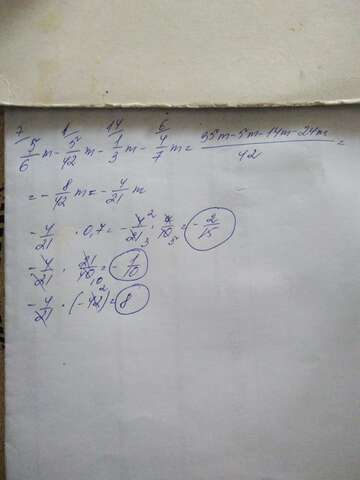 7 1 14 6
5/6 m - 5/42 m - 1/3 m - 4/7 m = (35m-5m-14m-24m)/42 =
= - 8/42 m = - 4/21 m
- 4/21 · 0,7 = - 4/21 · 7/10 = - 2/15
- 4/21 · 21/40 = - 1/10
- 4/21 · (-42) = 8